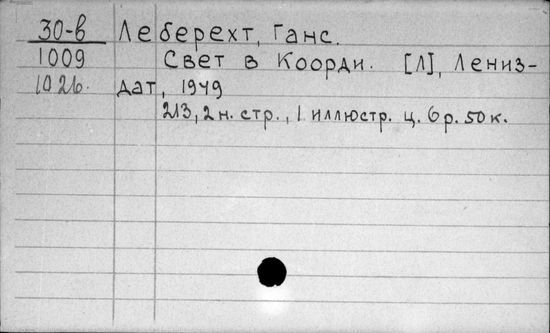 30-в Леберехт, Ганс.
1009 Свет в Коорди. [Л], Лениз-
1026. дат, 1949
213, 2 н. стр., 1 иллюстр. ц. 6 р. 50 к.